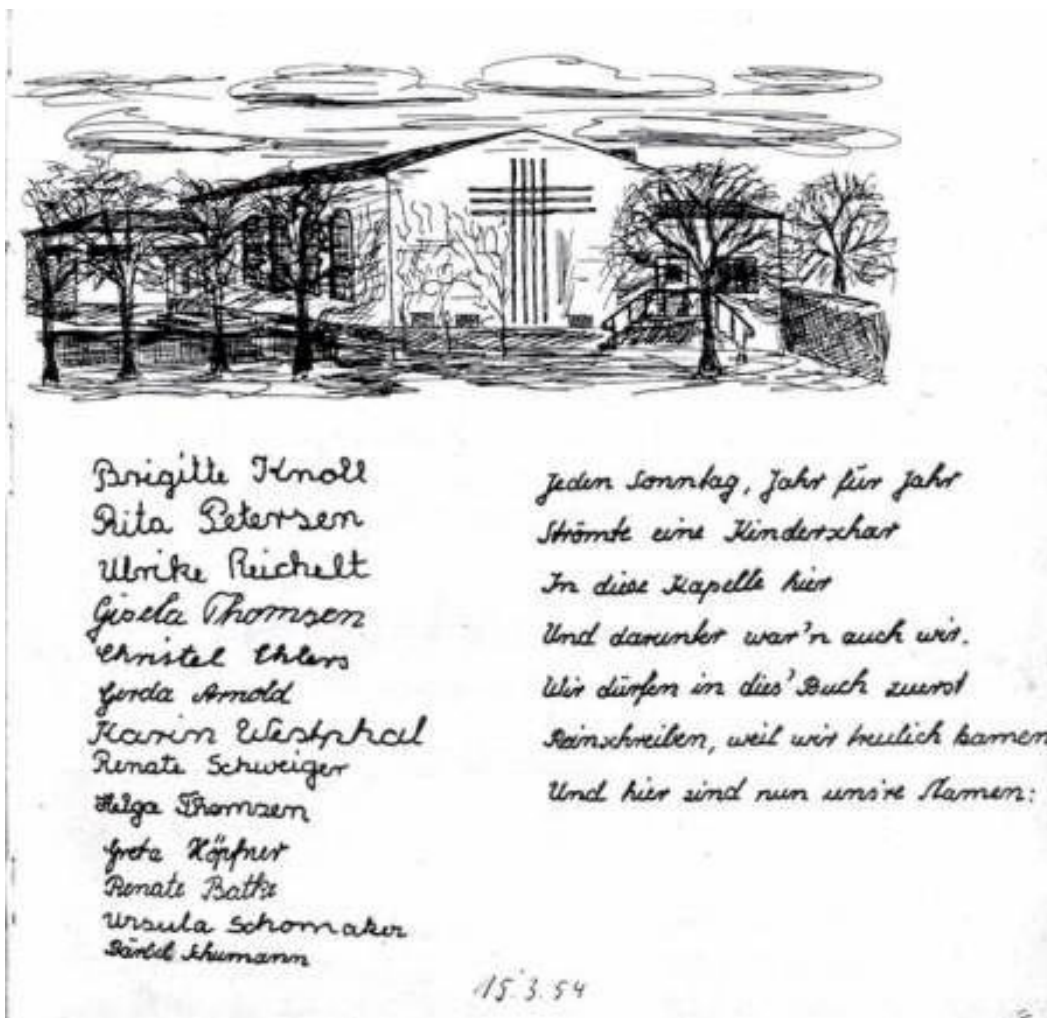 Brigitte Knoll
Rita Petersen
Ulrike Reichelt
Gisela Thomsen
Christel Ehlers
Gerda Arnold
Karin Westphal
Renate Schweiger
Helga Thomsen
Greta Höpfner
Renate Batke
Ursula Schomaker
Bärbel Schumann
Jeden Sonntag, Jahr für Jahr
Strömte eine Kinderschar
In diese Kapelle hier
Und darunter war'n auch wir.
Wir dürfen in dies' Buch zuerst
Reinschreiben, weil wir treulich kamen
Und hier sind nun uns're Namen:
15.3.54